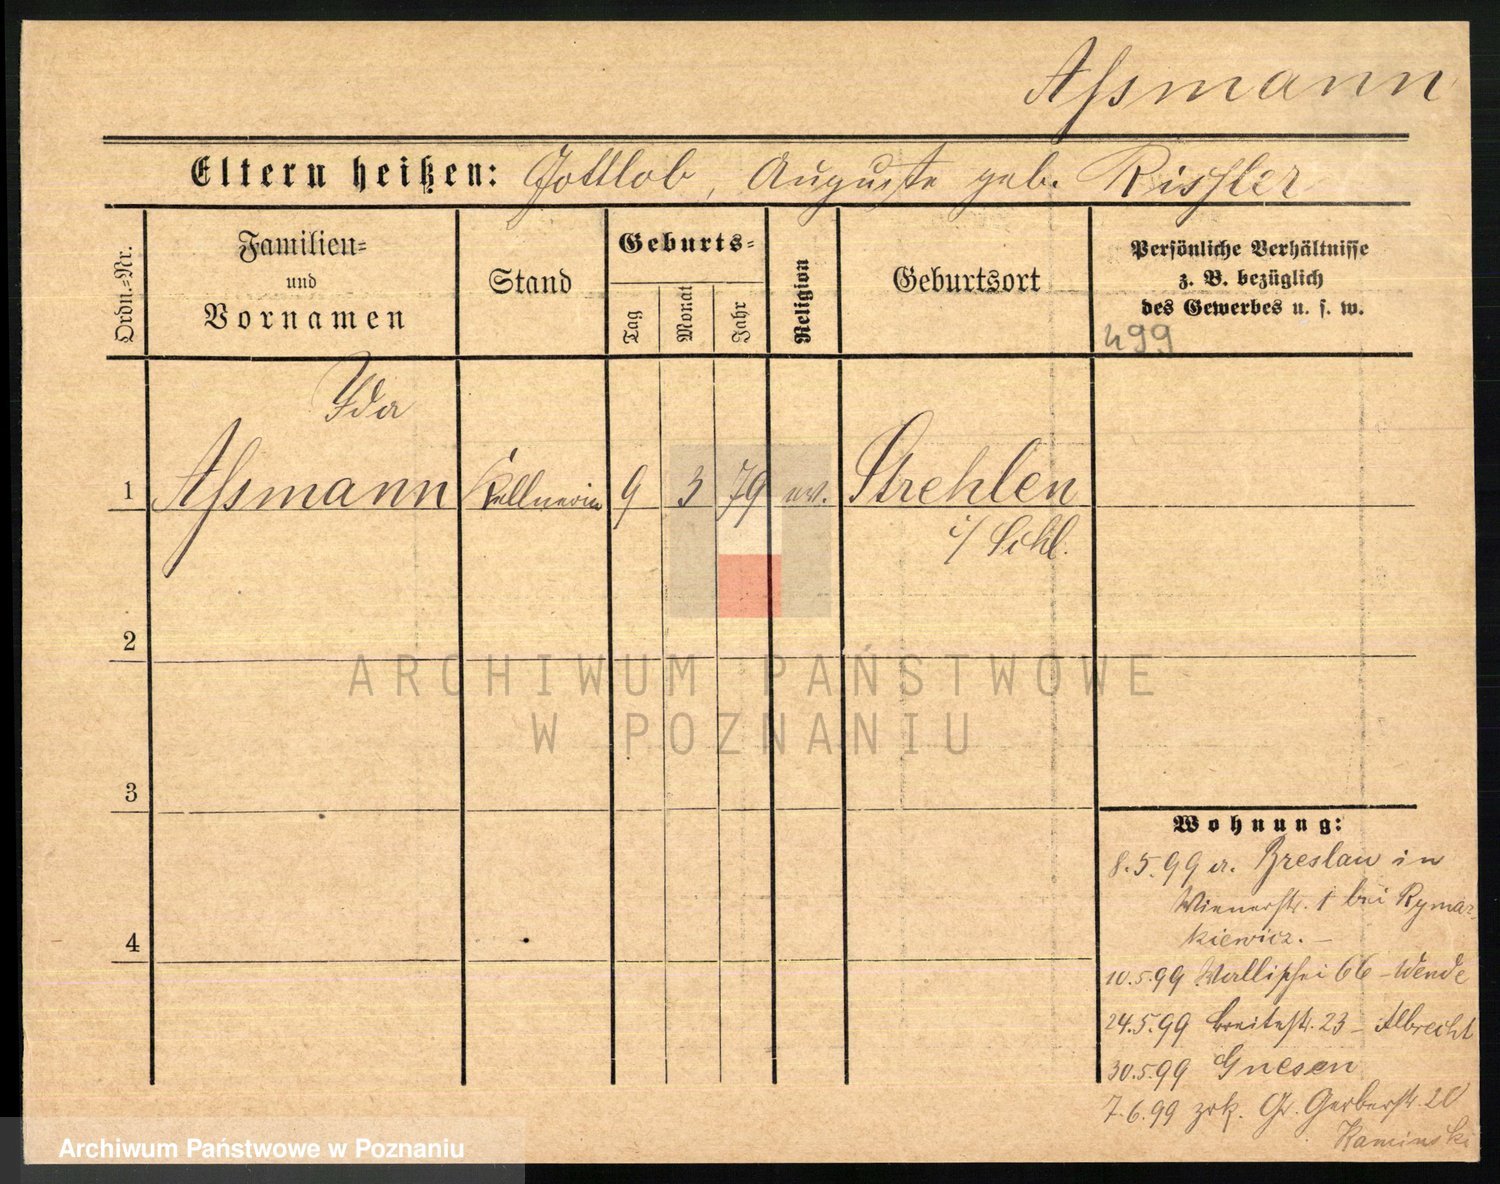 Aſsmann
Eltern heißen: Gottlob, Auguste geb. Rischler
Ordn.-Nr.
Familien-
und
Vornamen
Stand
Geburts-
Tag
Monat
Jahr
Religion
Geburtsort
Persönliche Verhältnisse
z. B. bezüglich
des Gewerbes u. s. w.
499
Ida
1 Aſsmann Kellnerin 9 3 79 ev. Strehlen
i/ Schl.
2
ARCHIWUM PAŃSTWOWE
W POZNANIU
3
4
Wohnung:
8.5.99 a. Breslau in
Wienerstr. 1 bei Rymar-
kiewicz. —
10.5.99 Wallischei 66 – Wende
24.5.99 Breitestr. 23 – Albrecht
30.5.99 Gnesen
7.6.99 zrk. Gr. Gerberstr. 20
Kaminski
Archiwum Państwowe w Poznaniu